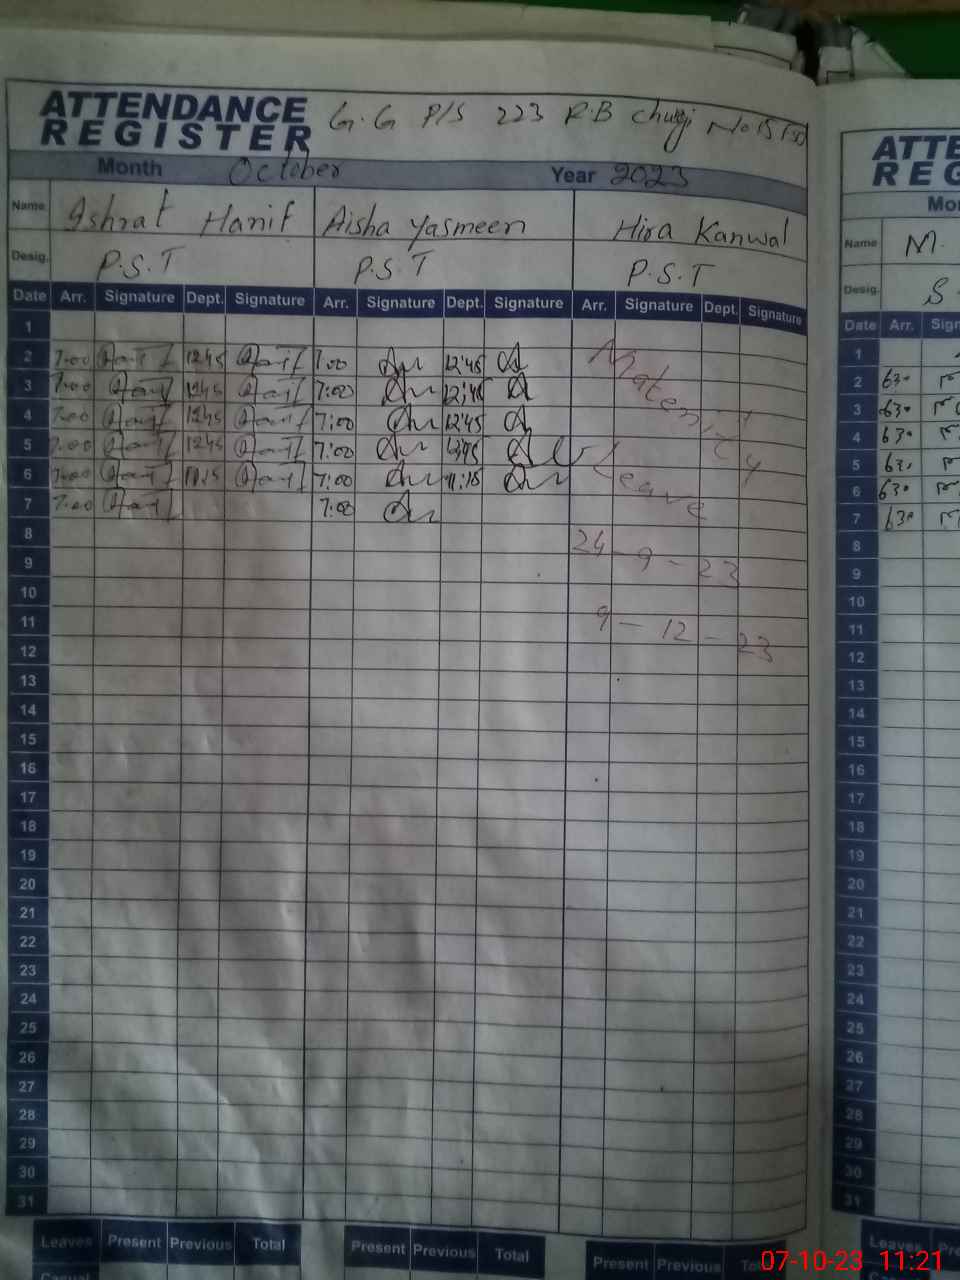 ATTENDANCE
REGISTER
G.G P/S 223 R.B Chungi No 15
Month October Year 2023
Name Ishrat Hanif Aisha Yasmeen Hira Kanwal
Desig. P.S.T P.S.T P.S.T
Date Arr. Signature Dept. Signature Arr. Signature Dept. Signature Arr. Signature Dept. Signature
1
2 7:00 Hanif 1245 Hanif 7:00 12:45
3 7:00 Hanif 1245 Hanif 7:00 12:45
4 7:00 Hanif 1245 Hanif 7:00 12:45
5 7:00 Hanif 1245 Hanif 7:00
6 7:00 Hanif 11.15 Hanif 7:00 11:15
7 7:00 Hanif 7:00
Maternity
Leave
24-9-23
9-12-23
8
9
10
11
12
13
14
15
16
17
18
19
20
21
22
23
24
25
26
27
28
29
30
31
Leaves Present Previous Total Present Previous Total Present Previous
ATTE
REG
Name M.
Desig. S
Date Arr. Sign
1
2 630
3 630
4 630
5 630
6 630
7 630
8
9
10
11
12
13
14
15
16
17
18
19
20
21
22
23
24
25
26
27
28
29
30
31
Leaves
07-10-23 11:21